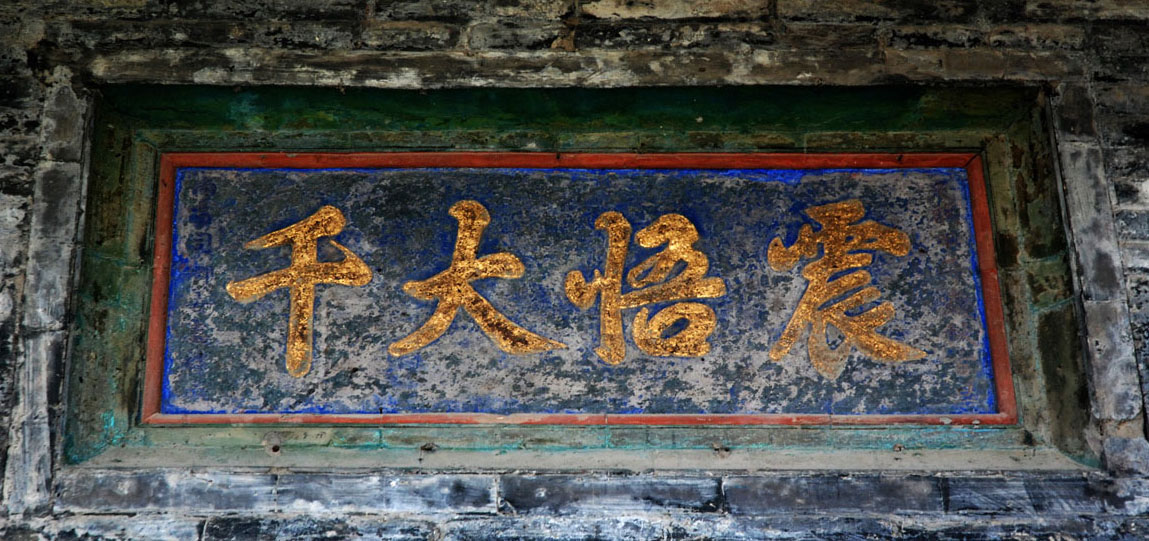 震悟大千